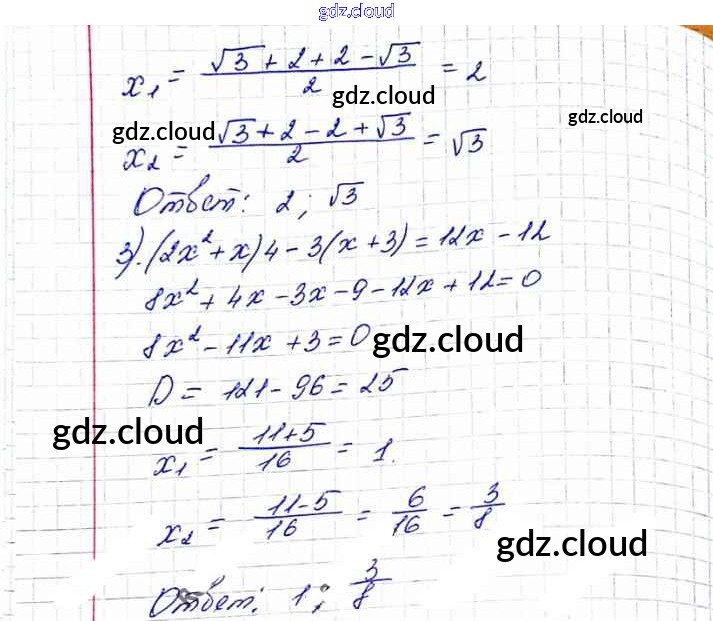 gdz.cloud
x₁ = (√3 + 2 + 2 - √3)/2 = 2
gdz.cloud
gdz.cloud
gdz.cloud
x₂ = (√3 + 2 - 2 + √3)/2 = √3
Ответ: 2; √3
3). (2x² + x)4 - 3(x + 3) = 12x - 12
8x² + 4x - 3x - 9 - 12x + 12 = 0
8x² - 11x + 3 = 0
gdz.cloud
D = 121 - 96 = 25
gdz.cloud
x₁ = (11+5)/16 = 1.
x₂ = (11-5)/16 = 6/16 = 3/8
gdz.cloud
Ответ: 1; 3/8